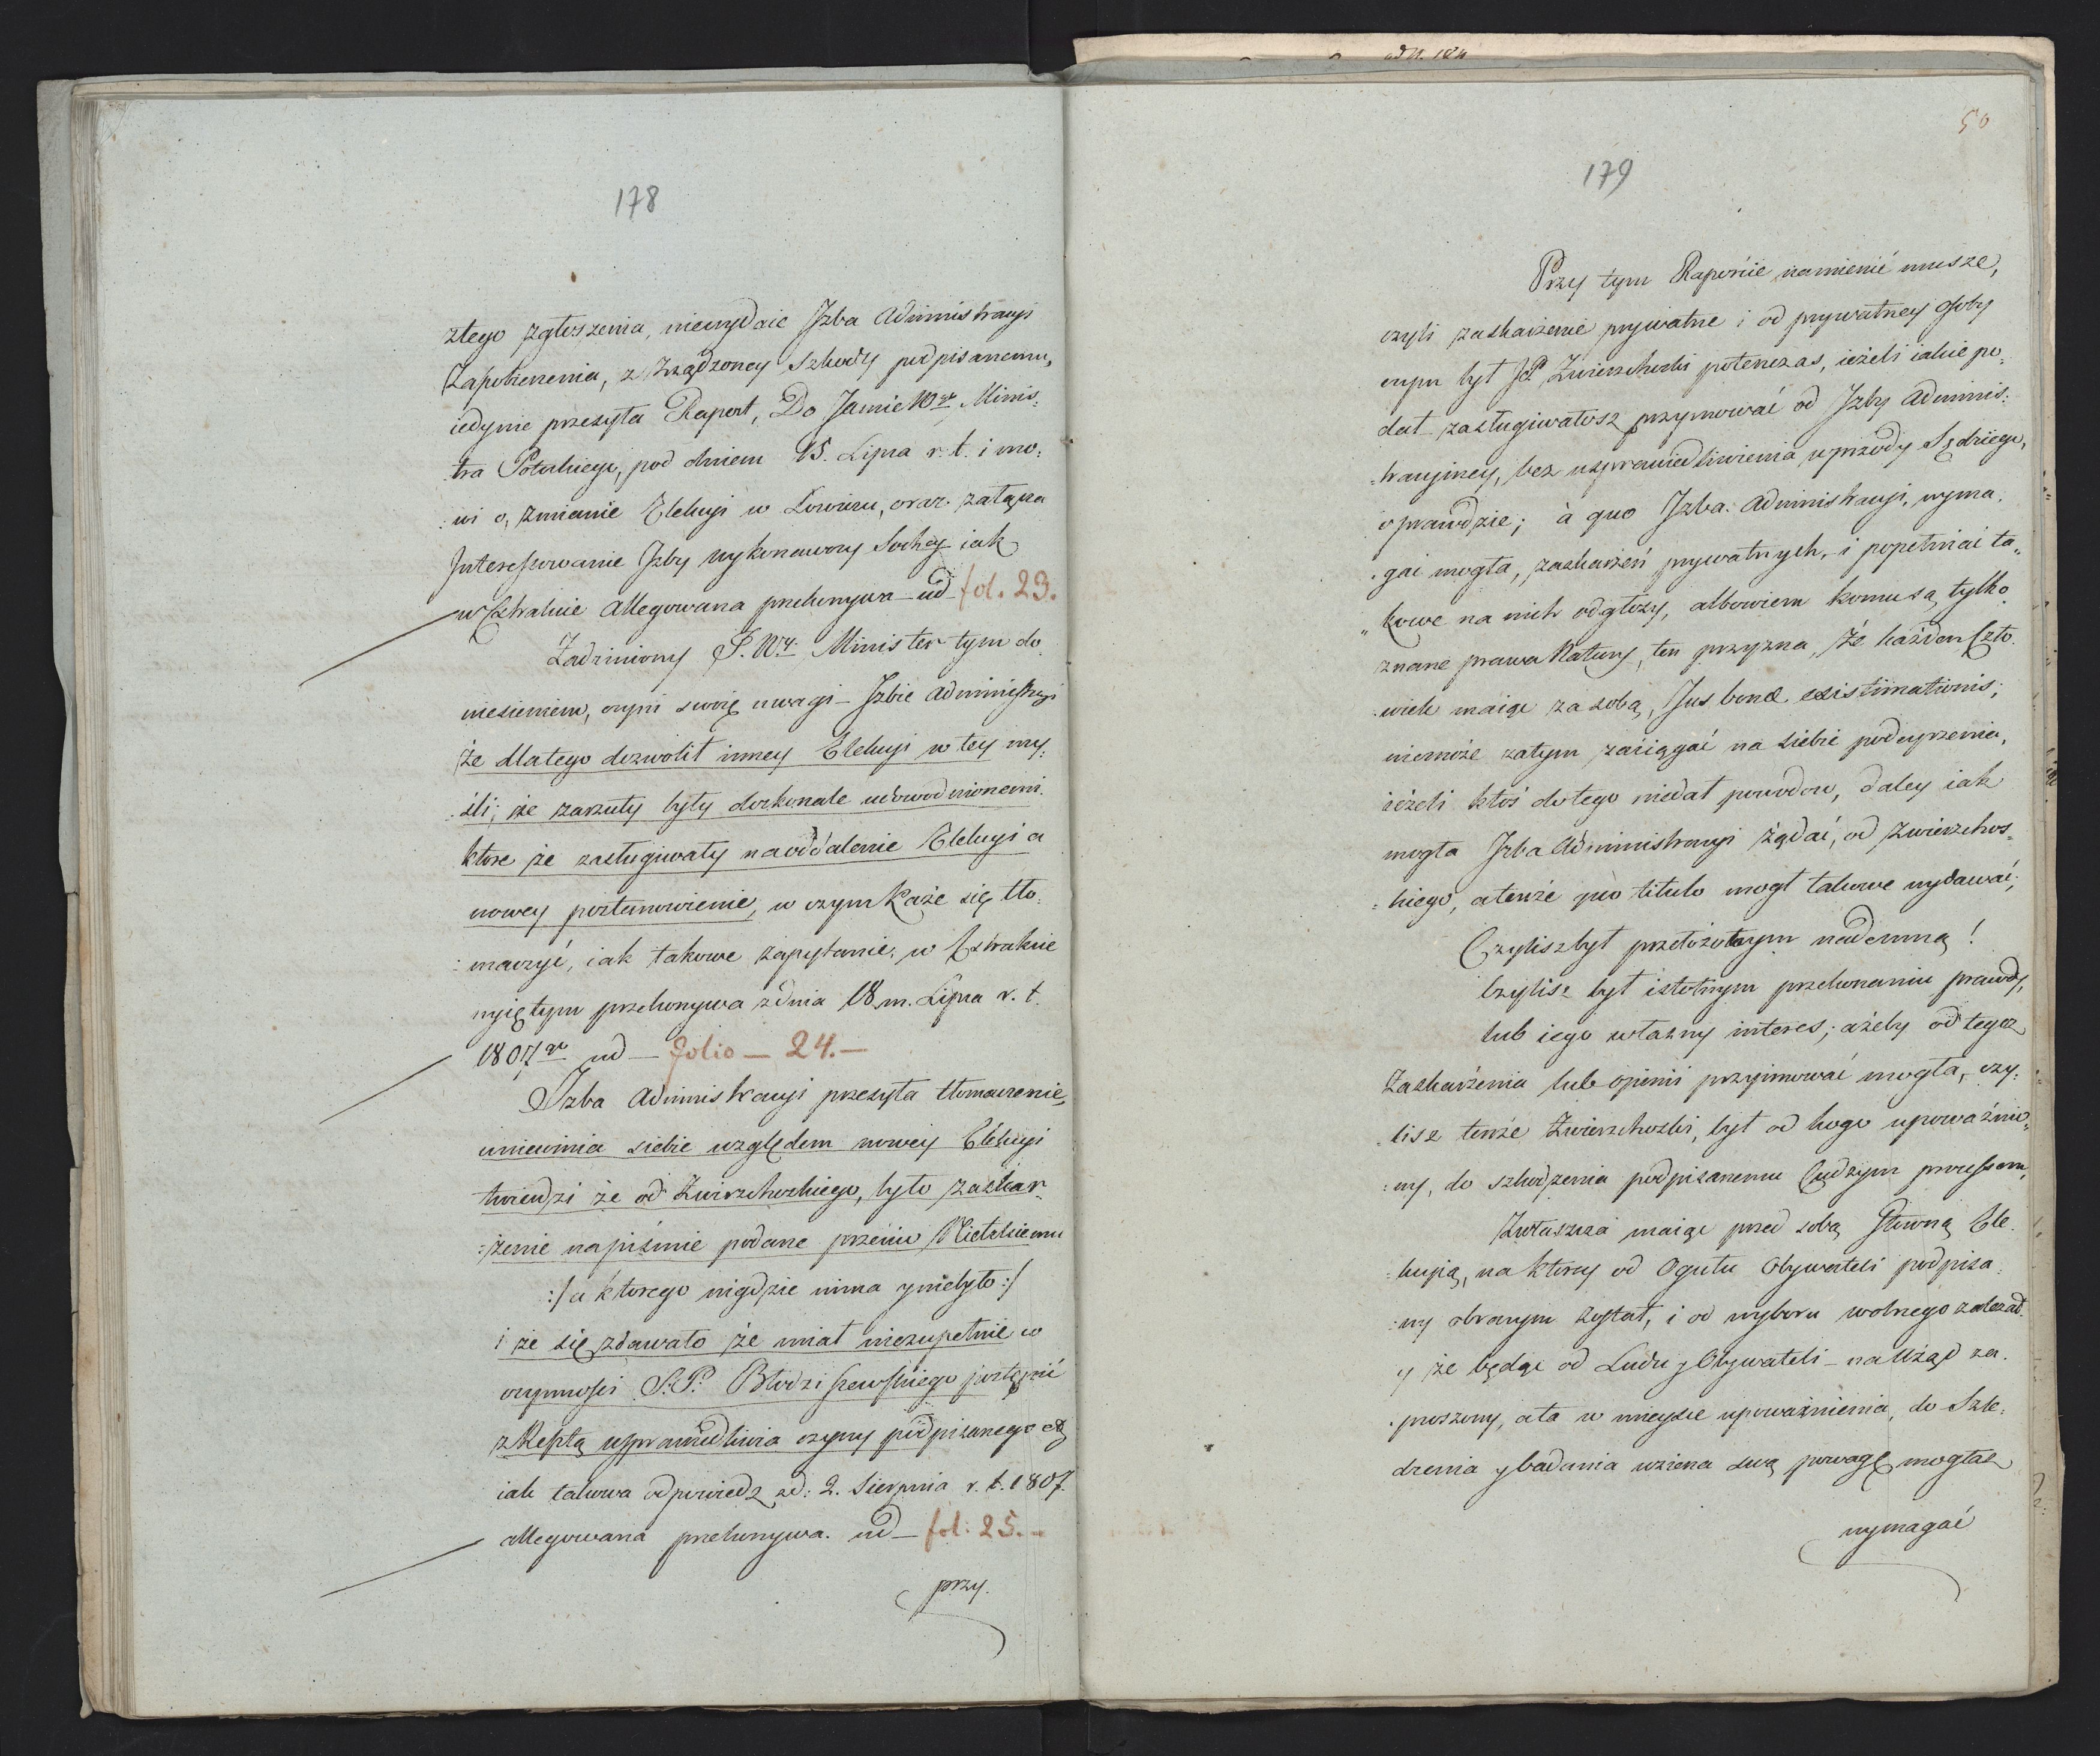 178
złego zgłoszenia, niewydaie Jzba Administracyi
Zapobierzenia, z rządzoney Szkody podpisanemu,
iedynie przesyła Raport, Do Jasnie Wgo Minis:
:tra Potockiego, pod dniem 15. Lipca r. t. i mo:
:wi o, zmianie Elekcyi w Łowiczu, oraz załącza
Interessowanie Jzby wykonawczy Sochaj iak
w Extrakcie allegowana przekonywa ud fol. 23.
Zadziwiony J. Wy. Minister tym do
niesieniem, czyni swoię uwagi – Jzbie Administracyi
że dlatego dozwolił inney Elekcyi w tey my:
:śli; że zarzuty były dozkonale udowodnionemi.
ktore że zasługiwały na oddalenie Elekcyi a
nowey postanowienie, w czym Każe się tło:
:maczyć, iak takowe zapytanie, w Extrakcie
wyiętym przekonywa z dnia 18 m. Lipca r. t.
1807go ud – folio – 24. –
Jzba Administracyi przesyła tłomaczenie,
uniewinia siebie względem nowey Elekcyi
twierdzi że od Zwierzchoskiego, było zaskar
:żenie napiśmie podane przeciw Mietelskiemu
:/ a ktorego nigdzie nima y niebyło :/
i że się zdawało że miał niezupełnie w
czynnosci S. P. Błodziszewskiego postępić
z Resztą usprawiedliwia czyny podpisanego etz
iak takowa odpowiedz zd: 2. Sierpnia r. t. 1807.
allegowana przekonywa. ud – fol: 25. –
przy.
ad N. 184
50
179
Przy tym Raporcie namienić musze,
czyli zaskarżenie prywatne i od prywatney osoby
czym był JP Zwierzchoski potenczas, ieżeli iakie po:
dał zasługiwałosz przymować od Jzby Adminis:
:tracyiney, bez usprawiedliwienia uprzody Sędziego,
o prawdzie; à quo Jzba Administracyi, wyma.
.gai mogła, zaskarżeń prywatnych, i popełniać ta„
„kowe na nich odgłozy, albowiem komu są tylko
znane prawa Natury, ten przyzna, że każden Czło
.wiek maiąc za sobą, Jus bonæ existimationis;
niemoże zatym zaciągać na siebie podeyrzenia,
ieżeli ktoś do tego niedał powodow, daley iak
mogła Jzba Administracyi żądać, od Zwierzchos„
:kiego, a tenże quo titulo mogł takowe wydawać;
Czylisz był przełożonym nademną!
Czylisz był istotnym przekonaniu prawdy,
lub iego własny interes; ażeby od tegoz
Zaskarżenia lub opinii przyimować mogła, czy:
:lisz tenże Zwierzchoski, był od kogo upoważnio„
:ny, do szkodzenia podpisanemu Cudzym processem,
Zwłaszcza maiąc przed sobą Słowną Ele.
:kcyią, na ktorey od Ogułu Obywateli podpisa„
:ny obranym został, i od wyboru wolnego zależał.
y że będąc od Ludu y Obywateli – na Urząd za.
.proszony, ata w mieysce upoważnienia, do Szle:
dzenia y badania wzięcia swą powagę mogłaz
wymagać